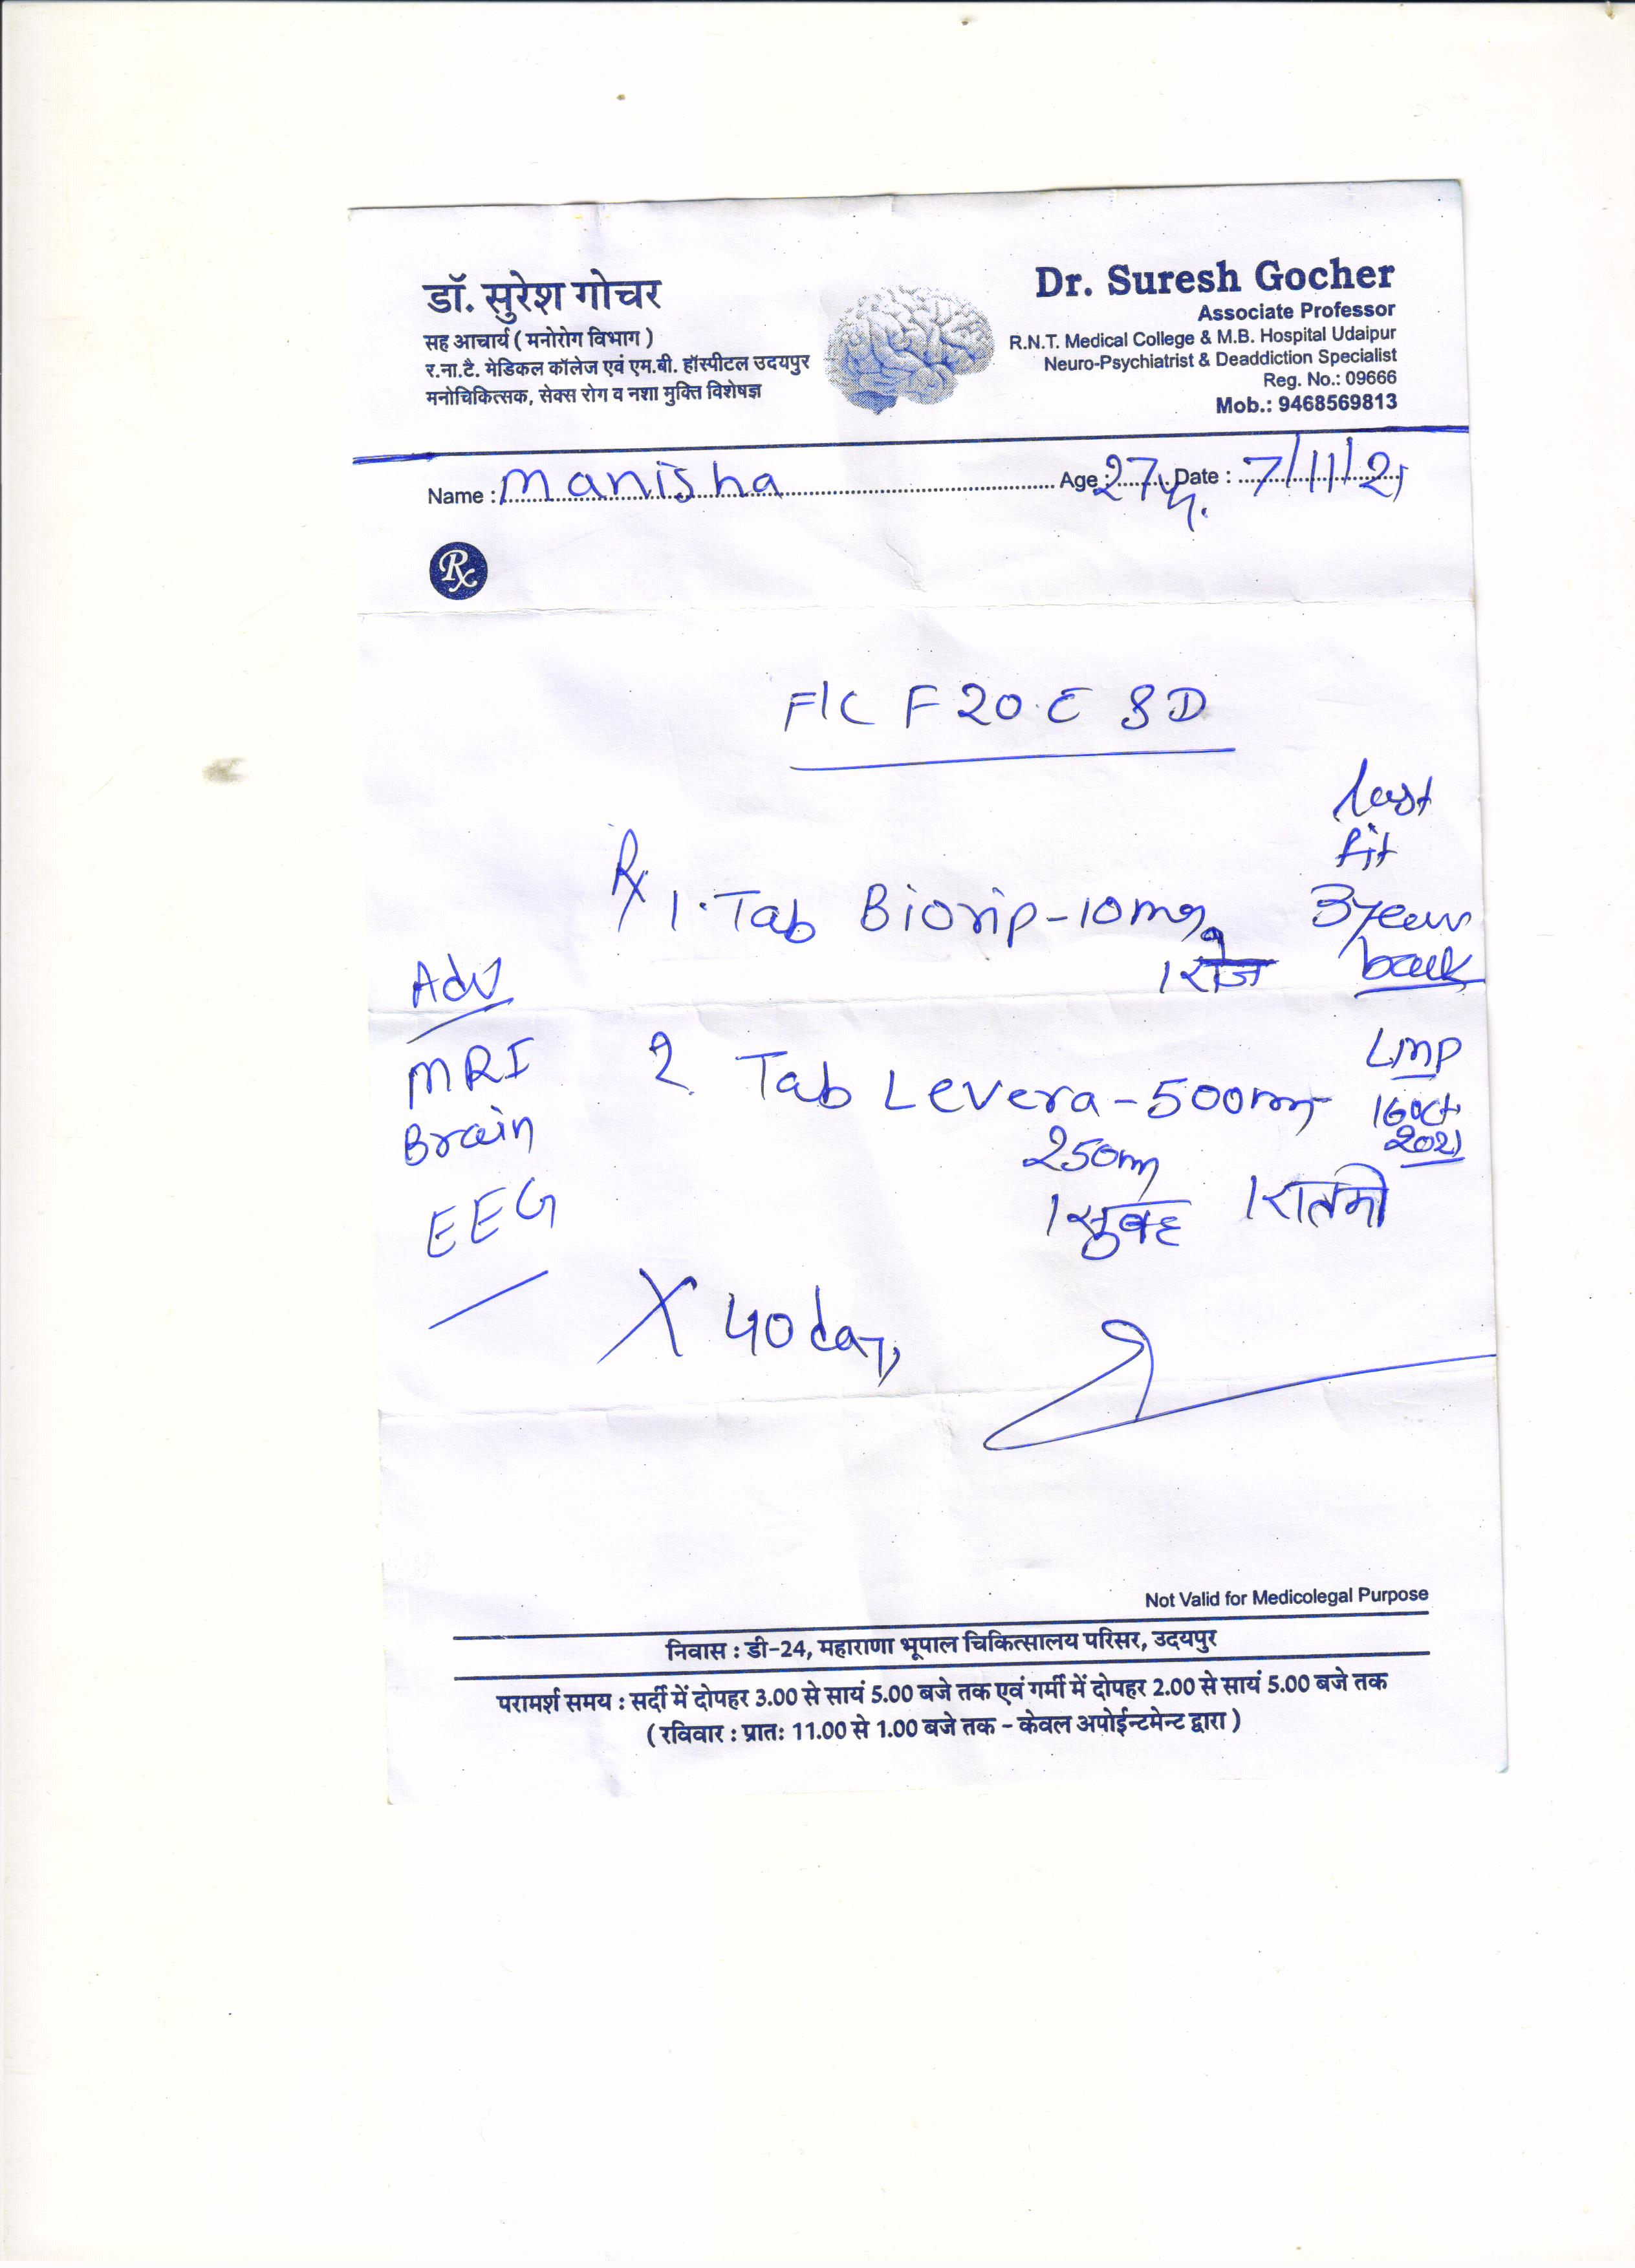 डॉ. सुरेश गोचर
सह आचार्य ( मनोरोग विभाग )
र.ना.टै. मेडिकल कॉलेज एवं एम.बी. हॉस्पीटल उदयपुर
मनोचिकित्सक, सेक्स रोग व नशा मुक्ति विशेषज्ञ
Dr. Suresh Gocher
Associate Professor
R.N.T. Medical College & M.B. Hospital Udaipur
Neuro-Psychiatrist & Deaddiction Specialist
Reg. No.: 09666
Mob.: 9468569813
Name : Manisha Age : 27 Date : 7/11/21
Rx
F/C F 20 C SD
last
fit
3 years
back
Rx 1. Tab Biorip-10mg
1 रोज
Adv
MRI
Brain
EEG
2 Tab Levera-500mg
250mg
1 सुबह 1 रात को
LMP
16 Oct
2021
X 40 days
Not Valid for Medicolegal Purpose
निवास : डी-24, महाराणा भूपाल चिकित्सालय परिसर, उदयपुर
परामर्श समय : सर्दी में दोपहर 3.00 से सायं 5.00 बजे तक एवं गर्मी में दोपहर 2.00 से सायं 5.00 बजे तक
( रविवार : प्रातः 11.00 से 1.00 बजे तक - केवल अपोईन्टमेन्ट द्वारा )